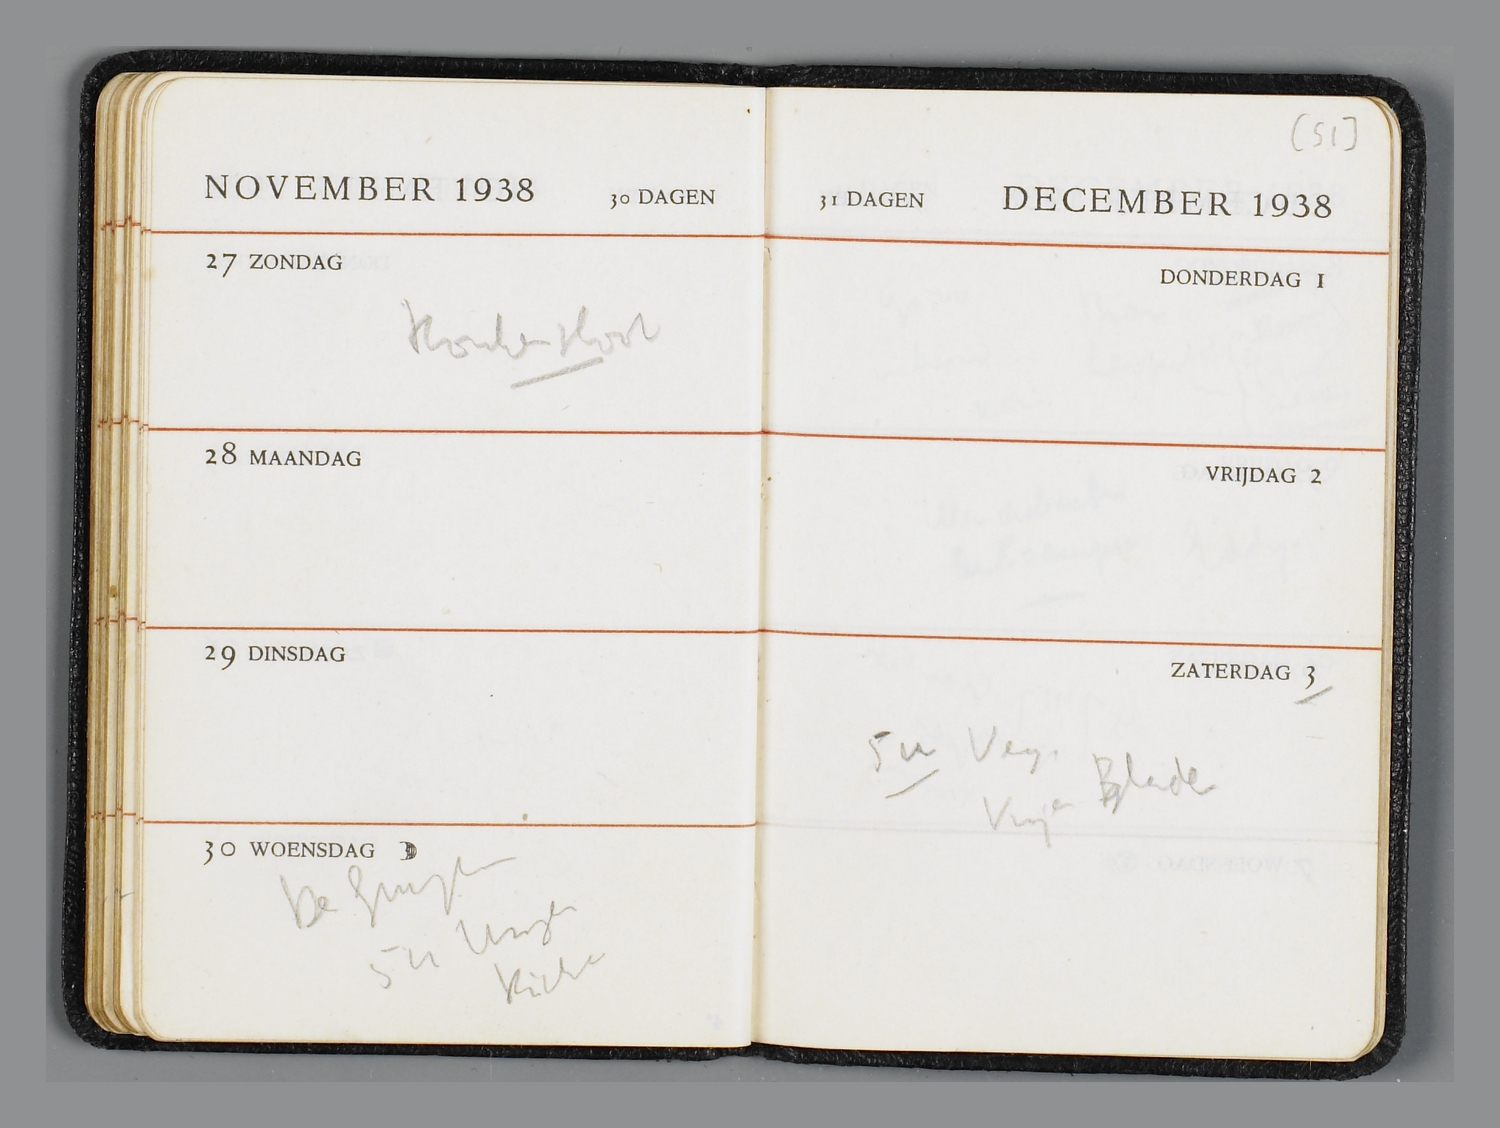 NOVEMBER 1938 30 DAGEN
27 ZONDAG
28 MAANDAG
29 DINSDAG
30 WOENSDAG
De
5 u
[51]
31 DAGEN DECEMBER 1938
DONDERDAG 1
VRIJDAG 2
ZATERDAG 3
5 u Verg.
Vrije Bladen